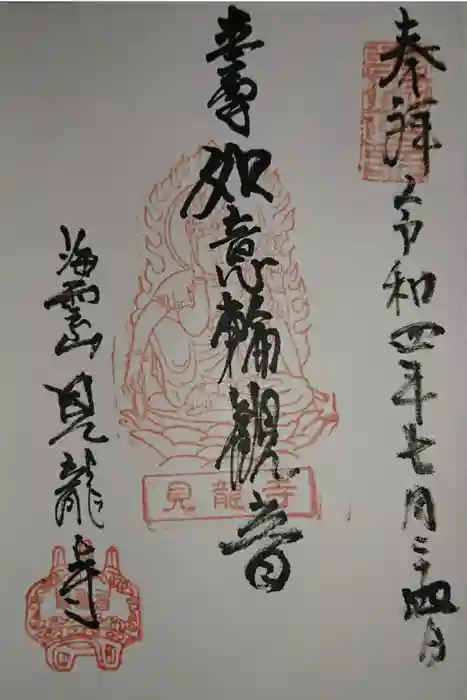 奉拝 令和四年七月二十四日
本尊 如意輪観音
見龍寺
海雲山 見龍寺